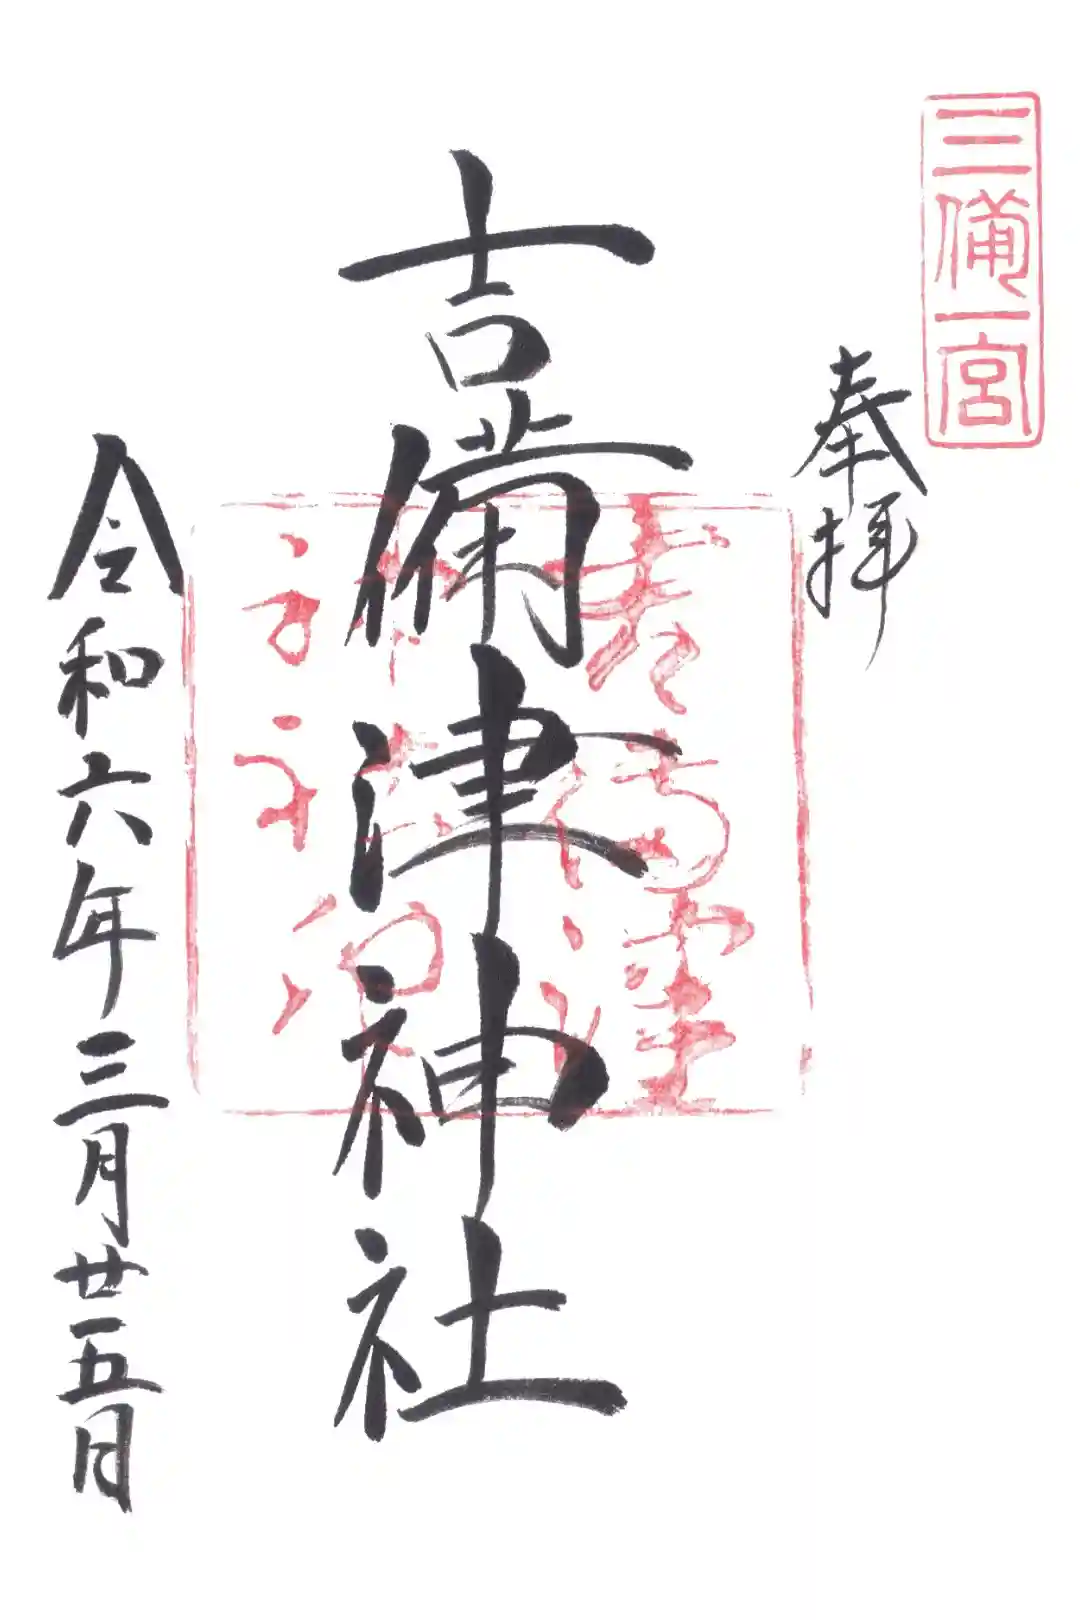 三備一宮
奉拝
吉備津神社
令和六年三月廿五日